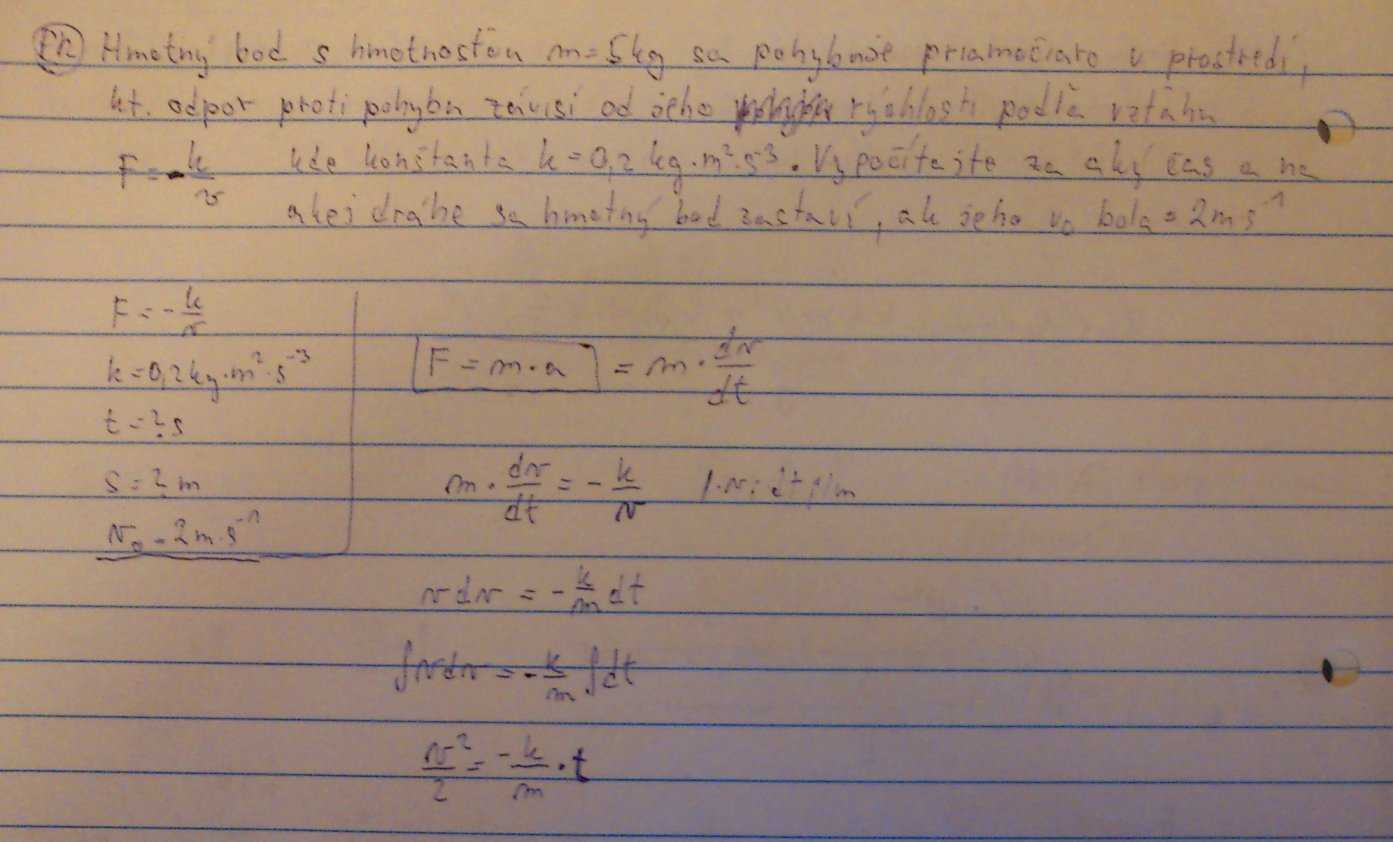 Pr Hmotný bod s hmotnosťou m=5kg sa pohybuje priamočiaro v prostredí,
kt. odpor proti pohybu závisí od jeho rýchlosti podľa vzťahu
F = -k/v kde konštanta k=0,2 kg·m²·s⁻³. Vypočítajte za aký čas a na
akej dráhe sa hmotný bod zastaví, ak jeho v₀ bola = 2ms⁻¹
F = -k/v
k=0,2kg·m²·s⁻³
t=?s
s=?m
v₀=2m·s⁻¹
F=m·a = m·dv/dt
m·dv/dt = -k/v /·v; dt; /m
v dv = -k/m dt
∫vdv = -k/m ∫dt
v²/2 = -k/m·t